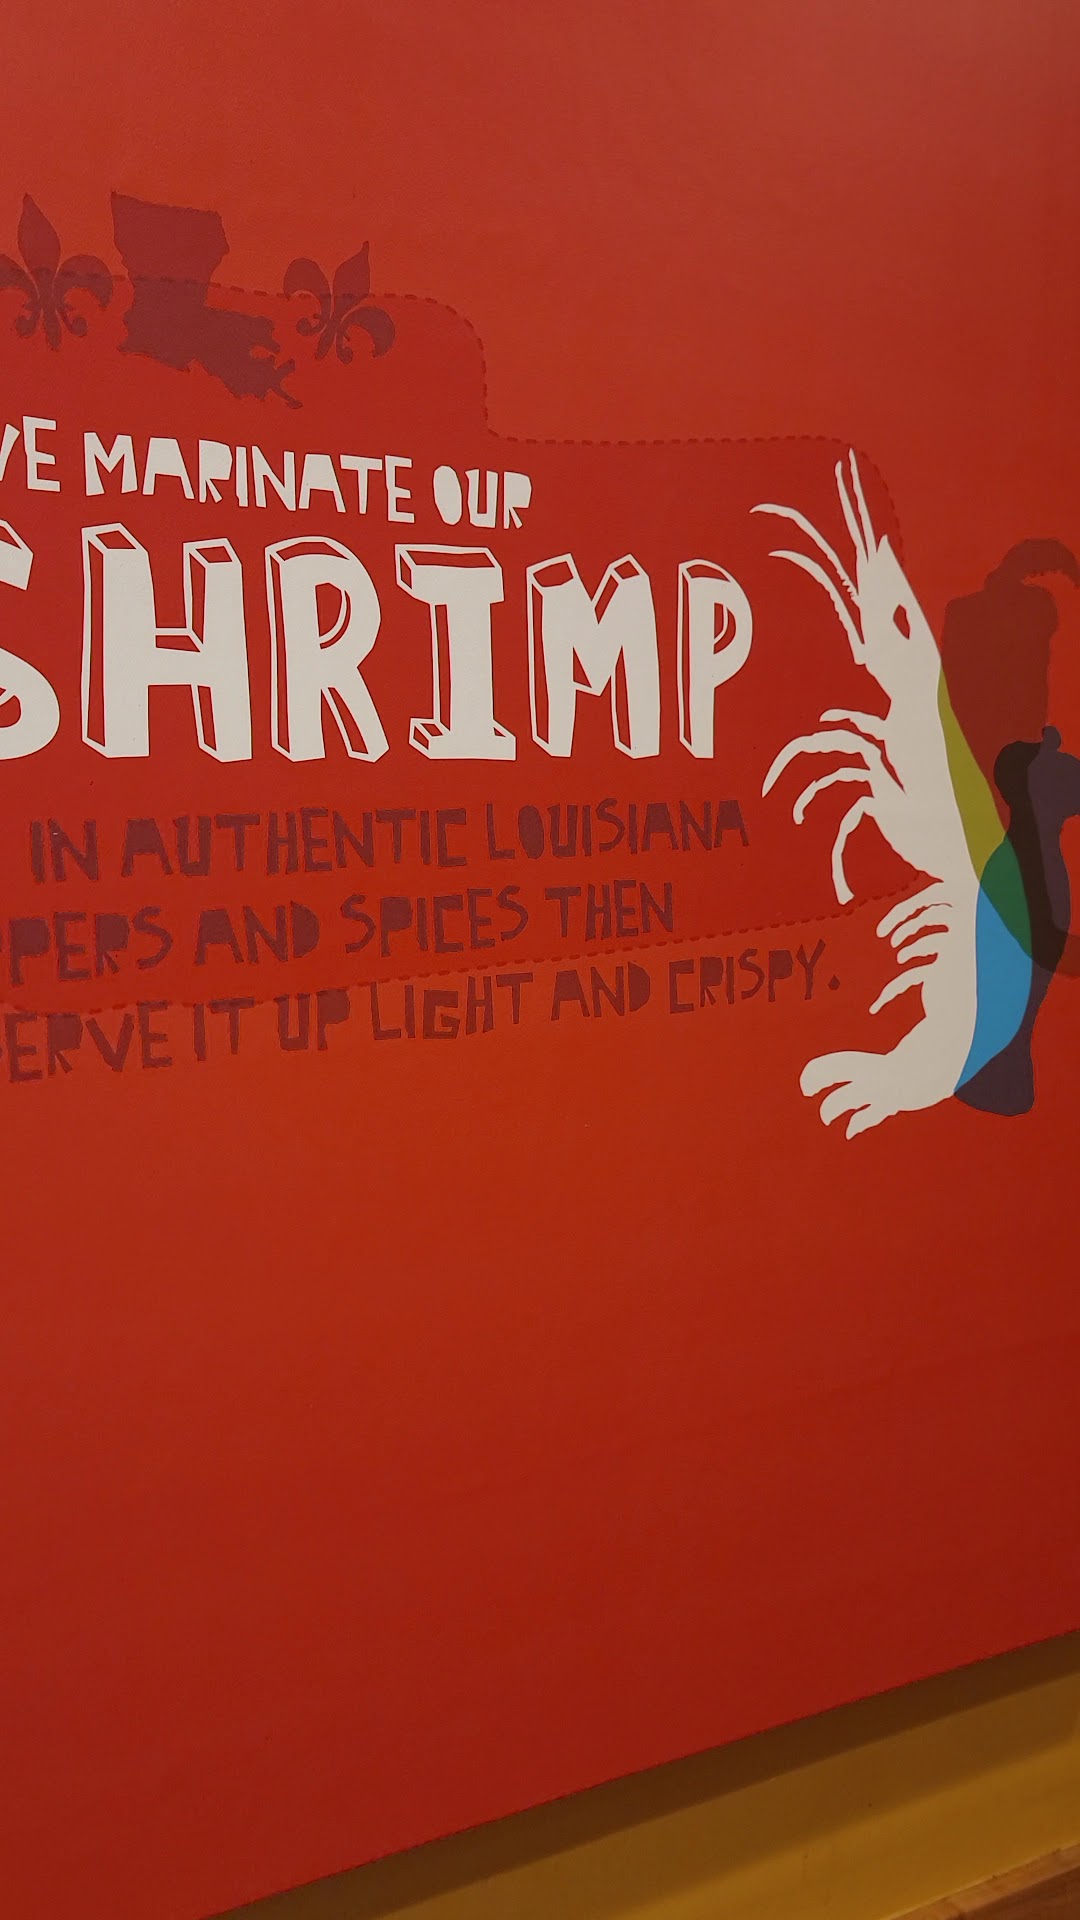 WE MARINATE OUR
SHRIMP
IN AUTHENTIC LOUISIANA
PPERS AND SPICES THEN
SERVE IT UP LIGHT AND CRISPY.